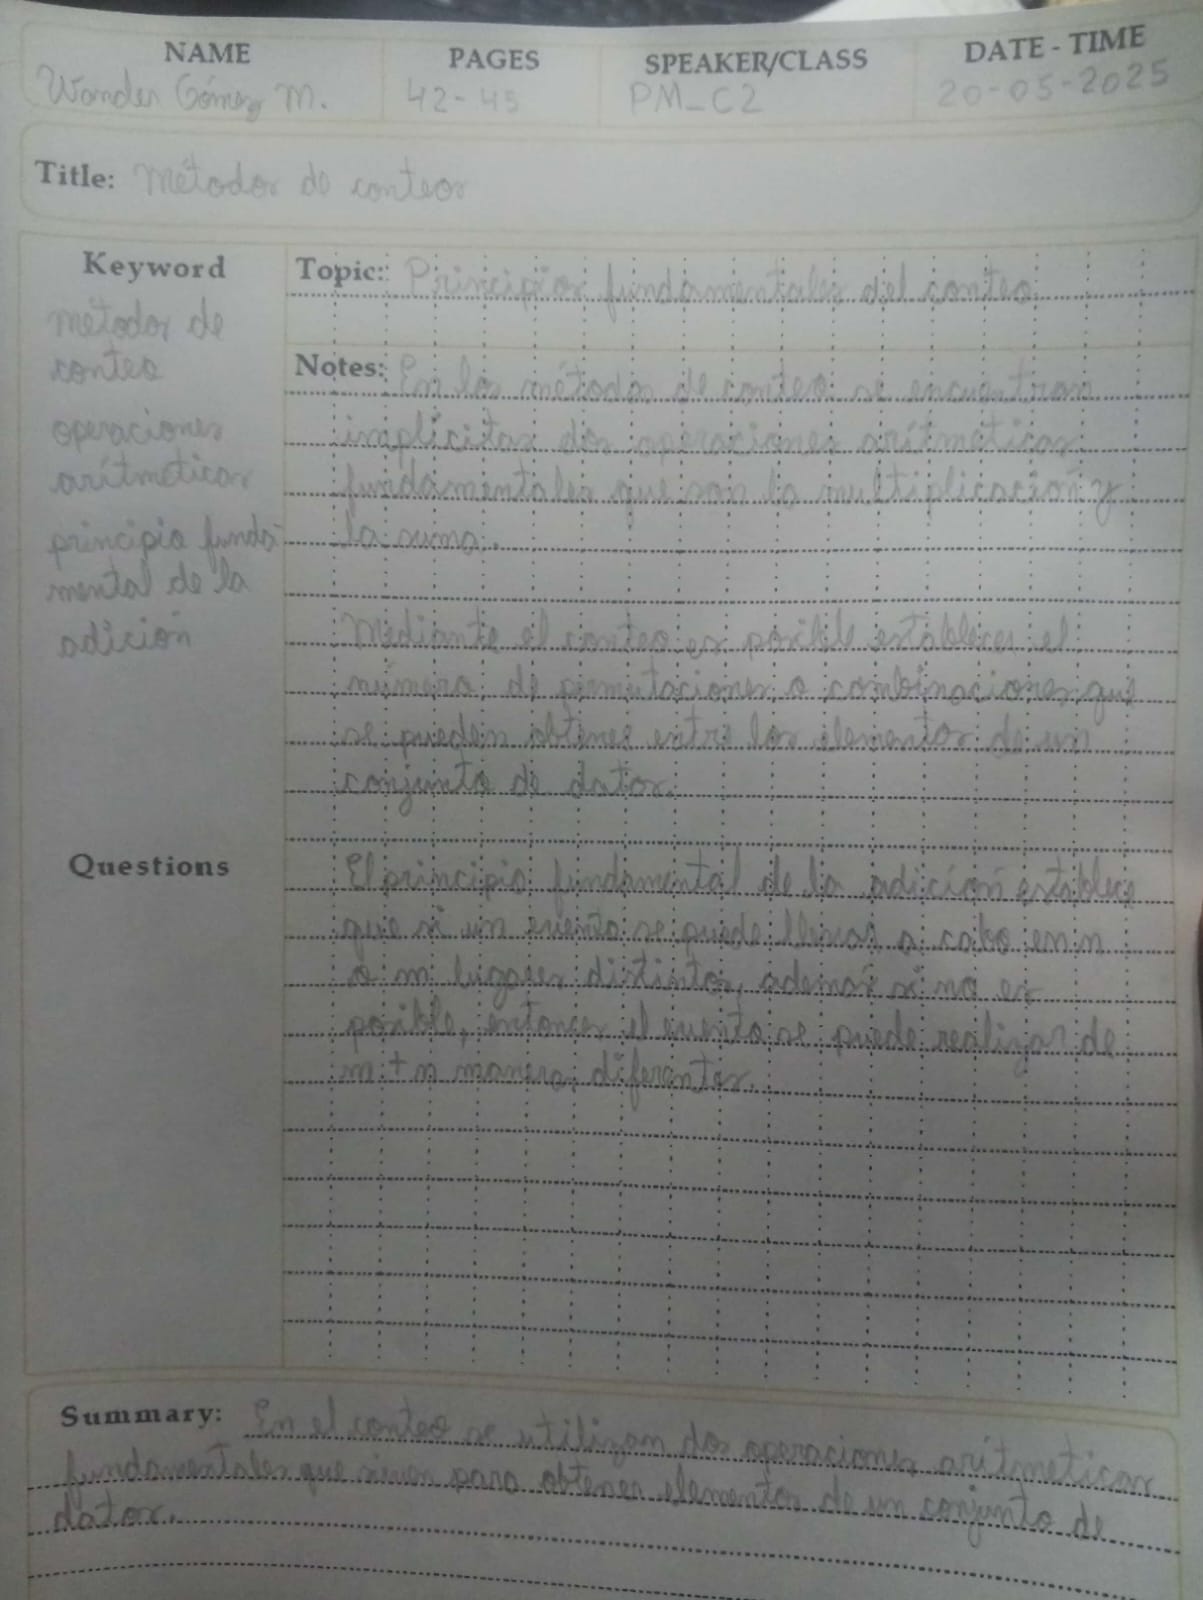 NAME
Wander Gómez M.
PAGES
42-45
SPEAKER/CLASS
PM_C2
DATE - TIME
20-05-2025
Title: Métodos de conteos
Keyword
métodos de
conteo
operaciones
arítmeticas
principio funda-
mental de la
adición
Questions
Topic: Principios fundamentales del conteo
Notes: En los métodos de conteo se encuentran
implicitas dos operaciones arítmeticas
fundamentales que son la multiplicación y
la suma.
Mediante el conteo es posible establecer el
número de permutaciones o combinaciones que
se pueden obtener entre los elementos de un
conjunto de datos.
El principio fundamental de la adición establece
que si un evento se puede llevar a cabo en n
o m lugares distintos, además si no es
posible, entonces el evento se puede realizar de
m + n maneras diferentes.
Summary: En el conteo se utilizan dos operaciones arítmeticas
fundamentales que sirven para obtener elementos de un conjunto de
datos.